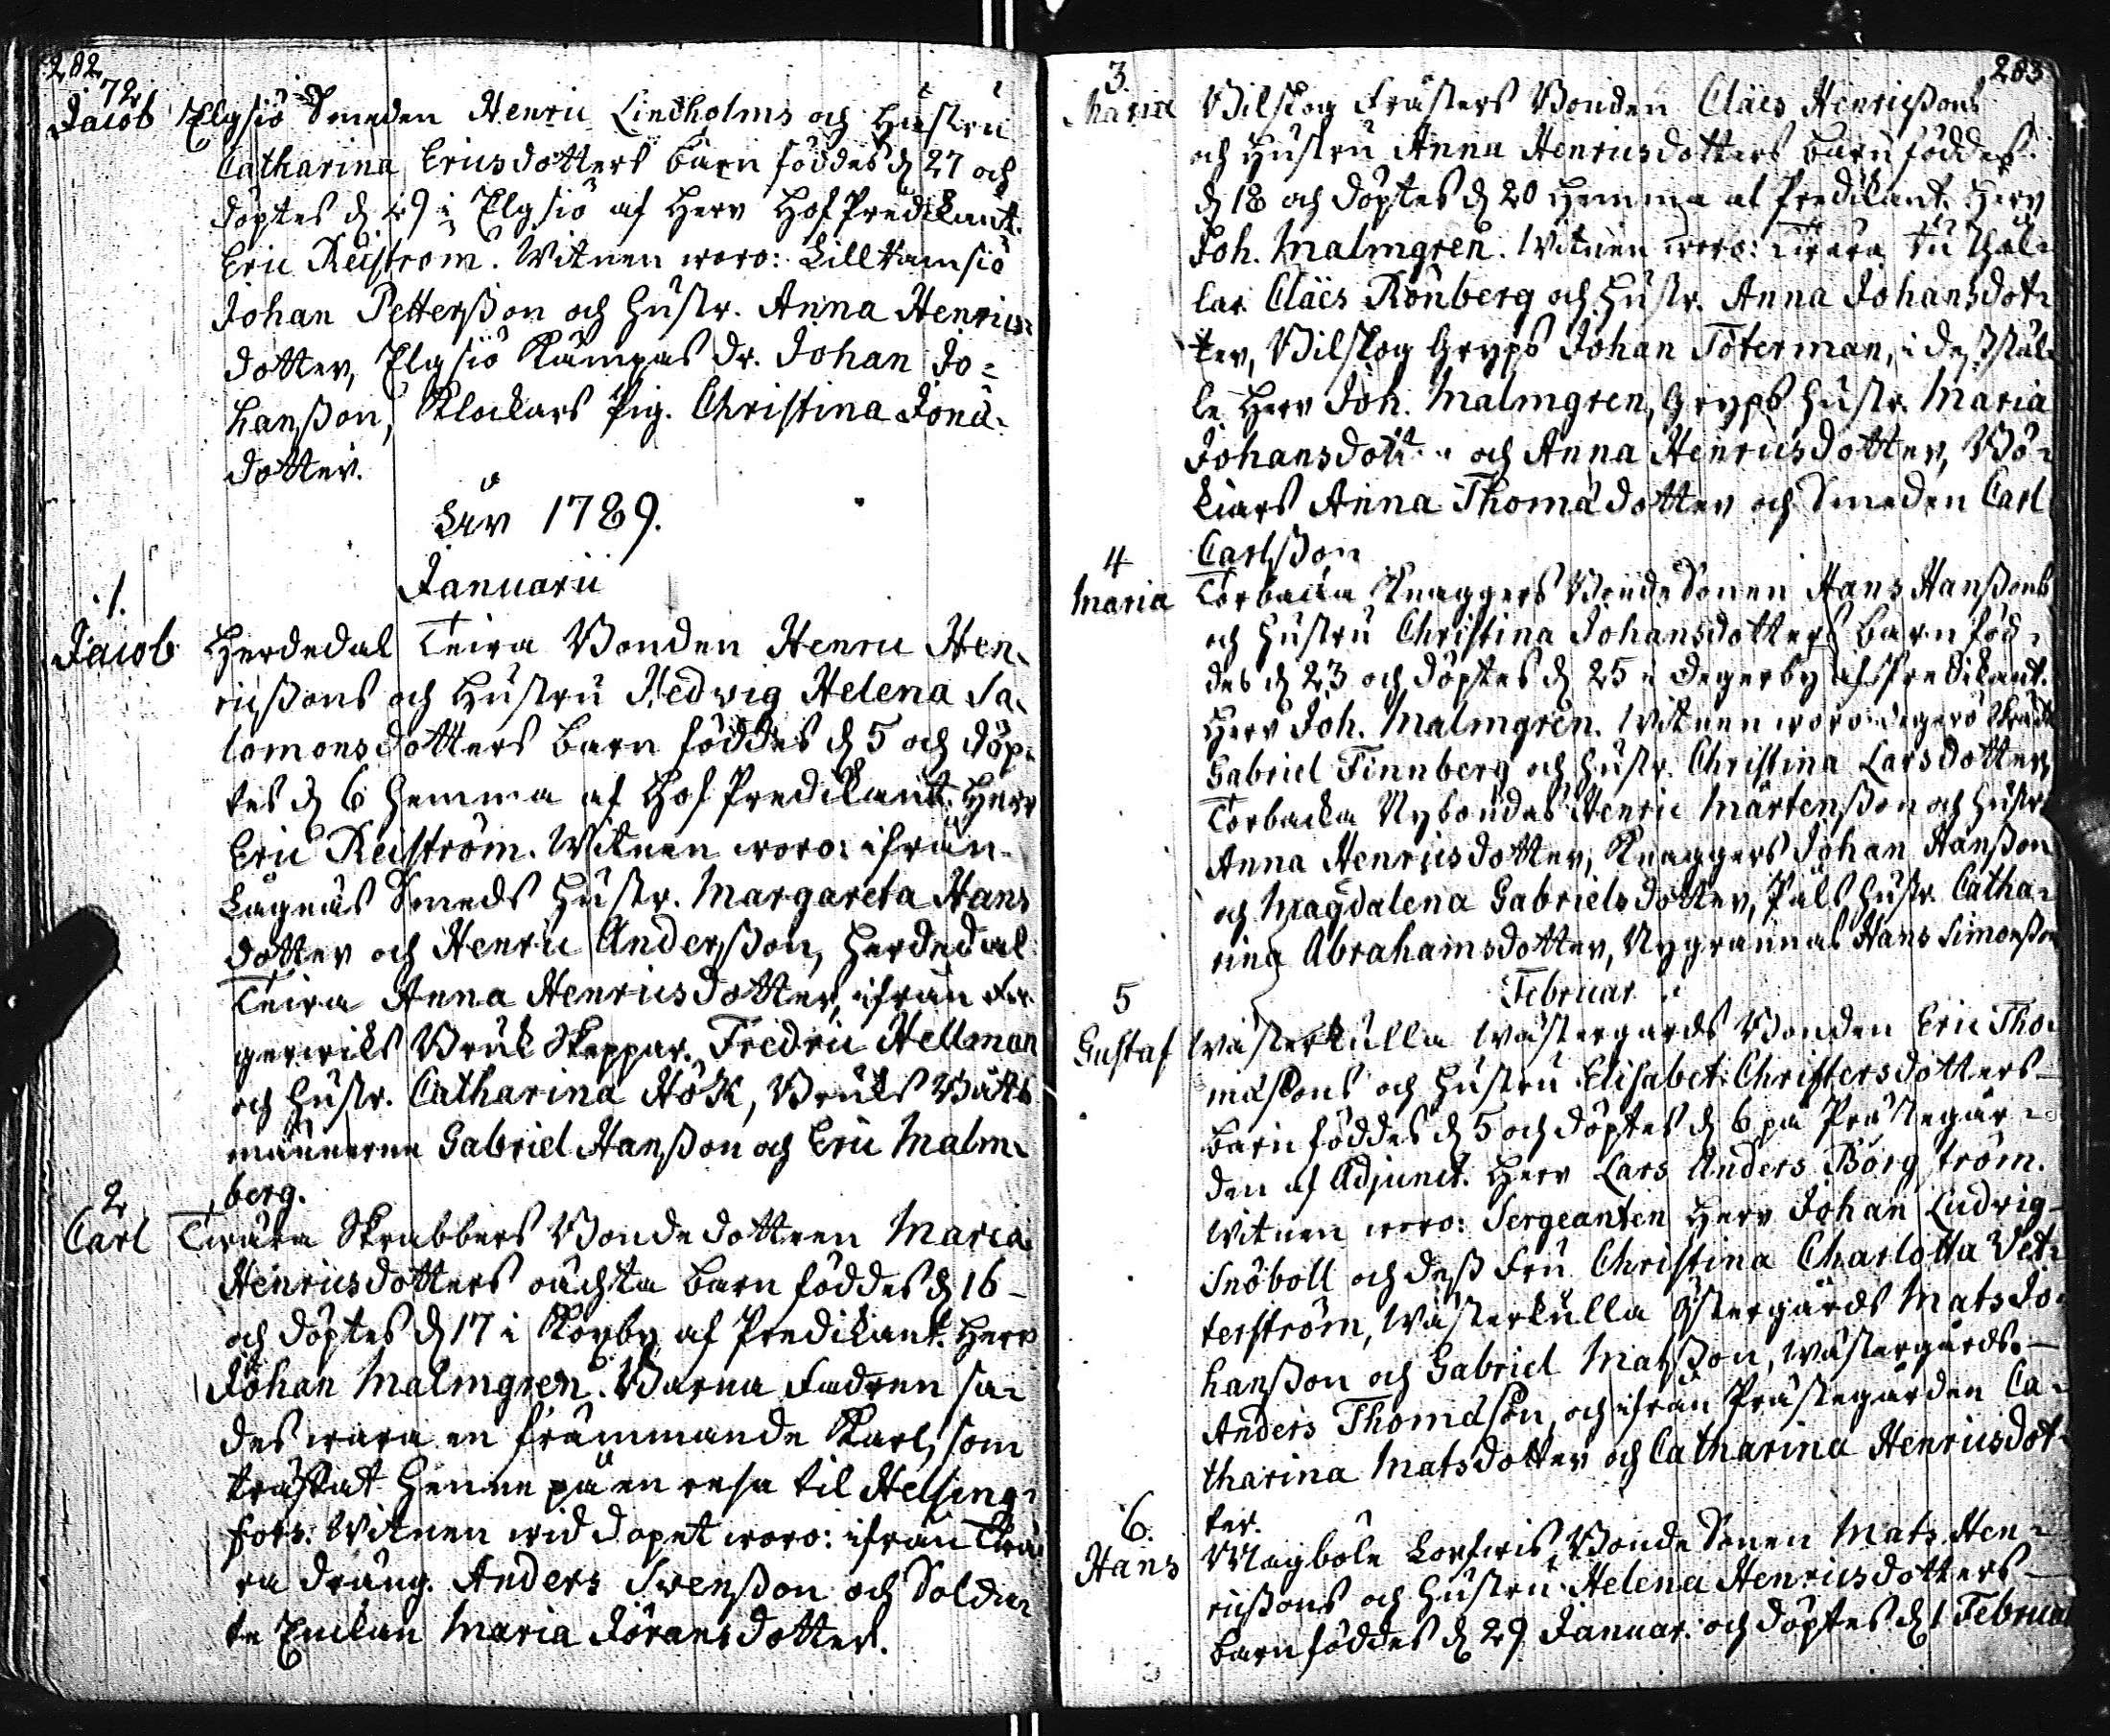 282
72
Jacob Elgsiö Smeden Henric Lindholms och Hustru
Catharina Ericsdotters barn föddes d 27 och
döptes d 29 i Elgsiö af Herr Hof Predikant.
Eric Reiström. Witnen woro: Lill Ramsiö
Johan Petterßon och Hustr. Anna Henrics=
dotter, Elgsiö Kämpas Dr. Johan Jo=
hanßon, Klockars Pig. Christina Jona=
dotter.
Åhr 1789.
Januarii
1.
Jacob Herdedal Teira Bonden Henric Hen=
ricßons och Hustru Hedvig Helena Sa=
lomonsdotters barn föddes d 5 och döp=
tes d 6 hemma af Hof Predikant. Herr
Eric Reiström. Witnen woro: ifrån
Lagnäs Smeds Hustr. Margareta Hans
dotter och Henric Anderßon, Herdedal
Teira Anna Henricsdotter, ifrån Fa=
gerwiks Bruk Skeppar. Fredric Hellman
och Hustr. Catharina Hök, Bruks Båts
männerne Gabriel Hanßon och Eric Malm=
berg.
2
Carl Twära Skrabbers Bondedottren Maria
Henricsdotters oächta barn föddes d 16
och döptes d 17 i Köpby af Predikant. Herr
Johan Malmgren. Barna Fadren sa=
des wara en främmande Karl, som
träffat henne på en resa til Helsing=
fors. Witnen wid dopet woro: ifrån Twä=
ra Dräng. Anders Swenßon och Solda=
te Enkan Maria Jöransdotter.
283
3.
Maria Bilskog Frästers Bonden Claës Henricßons
och Hustru Anna Henricsdotters barn föddes
d 18 och döptes d 20 hemma af Predikant. Herr
Joh. Malmgren. Witnen woro: Twära
lar Claës Rönberg och Hustr. Anna Johansdot=
ter, Bilskog Gryps Johan Töterman, i deß stäl=
le Herr Joh. Malmgren, Gryps Hustr. Maria
Johansdott. och Anna Henricsdotter, Bö=
kiars Anna Thomädotter och Smeden Carl
Carlßon
4
Maria Torbacka Knaggers Bonde Sonen Hans Hanßons
och Hustru Christina Johansdotters barn föd=
des d 23 och döptes d 25 i Degerby af Predikant.
Herr Joh. Malmgren. Witnen woro: Degerö
Gabriel Finnberg och Hustr. Christina Larsdotter,
Torbacka Nybondas Henric Mårtenßon och Hustr.
Anna Henricsdotter, Knaggers Johan Hanßon
och Magdalena Gabrielsdotter, Påls Hustr. Catha=
rina Abrahamsdotter, Nygrannas Hans Simonßon
Februar.
5
Gustaf Wästerkulla Wästergårds Bonden Eric Tho=
mäsons och Hustru Elisabet Christersdotters
barn föddes d 5 och döptes d 6 på Prästegår=
den af Adjunct. Herr Lars Anders Borgström.
Witnen woro: Sergeanten Herr Johan Ludvig
Snöboll och deß Fru Christina Charlotta Vet=
terström, Wästerkulla Östergårds Mats Jo=
hanßon och Gabriel Matßon, Wästergårds
Anders Thomäson, och ifrån Prästegården Ca=
tharina Matsdotter och Catharina Henricsdot=
ter.
6.
Hans Magböle Bonde Sonen Mats Hen=
ricßons och Hustru Helena Henricsdotters
barn föddes d 29 Januar. och döptes d 1 Februar